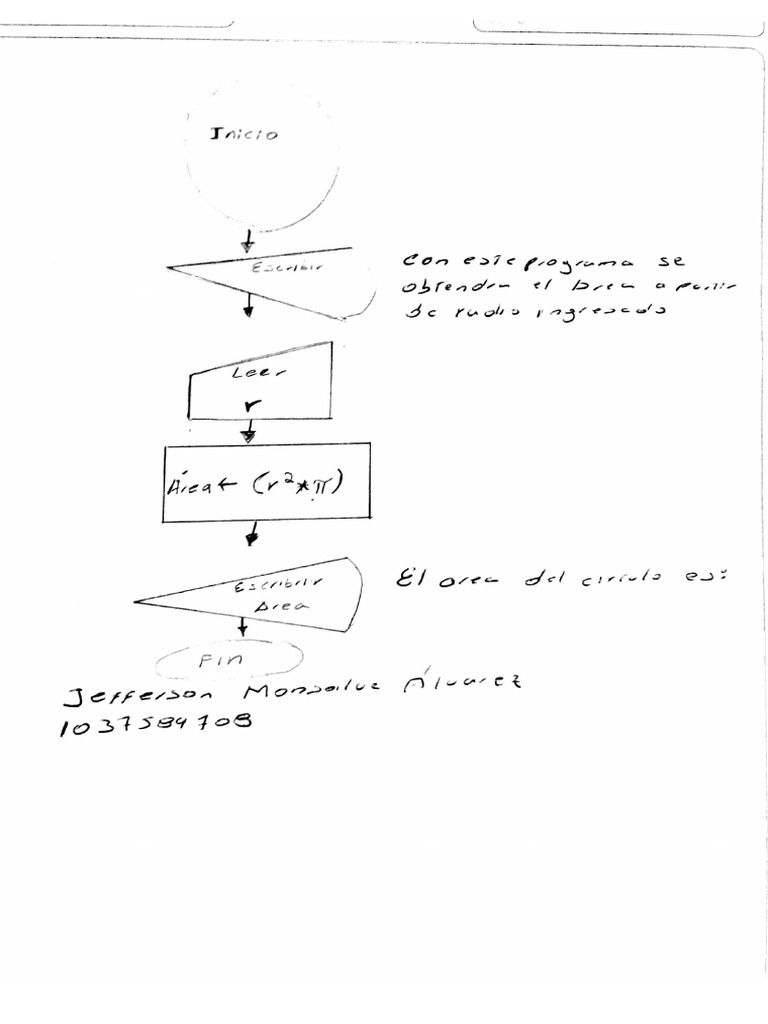 Inicio
Escribir
Con este programa se
obtendra el área a partir
de radio ingresado
Leer
r
Área← (r²*π)
Escribrir
Area
El area del circulo es:
Fin
Jefferson Monsalve Álvarez
1037584708